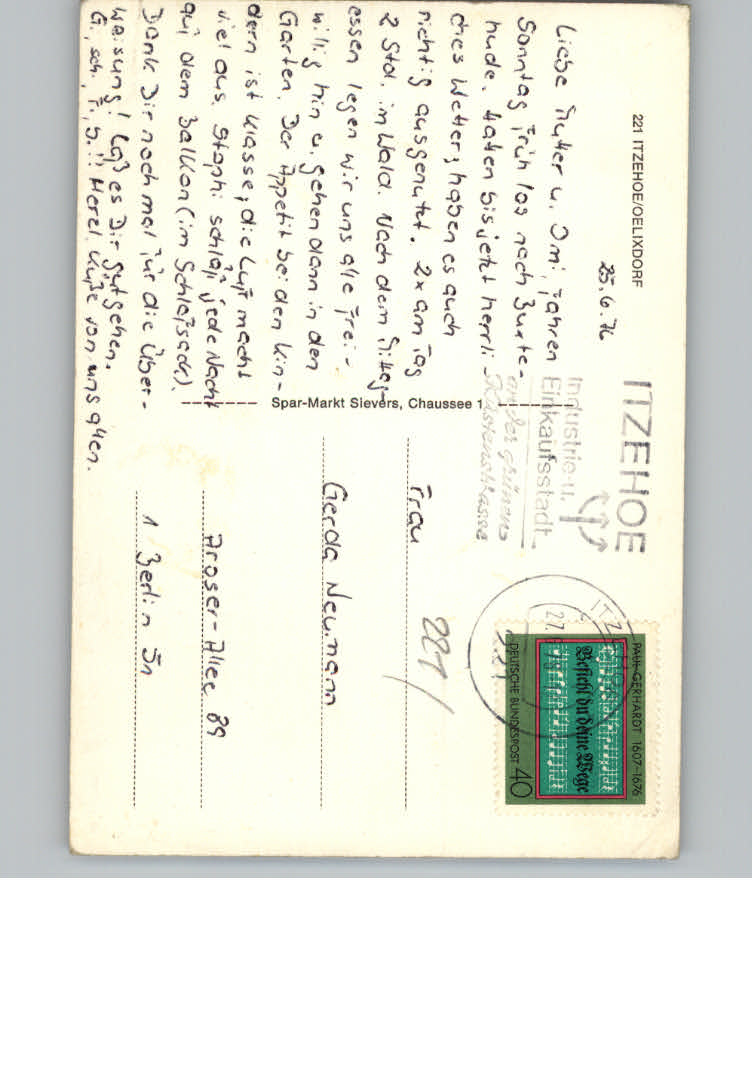 221 ITZEHOE/OELIXDORF
25.6.76
Liebe Mutter u. Omi, fahren
Sonntag früh los nach Buxte-
hude. Hatten bis jetzt herrli-
ches Wetter, haben es auch
richtig ausgenutzt. 2x am Tag
2 Std. im Wald. Nach dem Mittag-
essen legen wir uns alle frei-
willig hin u. gehen dann in den
Garten. Der Appetit bei den Kin-
dern ist klasse, die Luft macht
viel aus. Stephi schläft jede Nacht
auf dem Balkon (im Schlafsack).
Dank Dir noch mal für die Über-
weisung! Laß es Dir gut gehen.
Herzl. Küße von uns allen.
Spar-Markt Sievers, Chaussee 1
ITZEHOE
Industrie- u.
Einkaufsstadt
an der grünen
Küstenstrasse
ITZ
27.
221
PAUL GERHARDT 1607-1676
Befiehl du deine Wege
DEUTSCHE BUNDESPOST 40
221/
Frau
Gerda Neumann
Aroser-Allee 89
1 Berlin 51